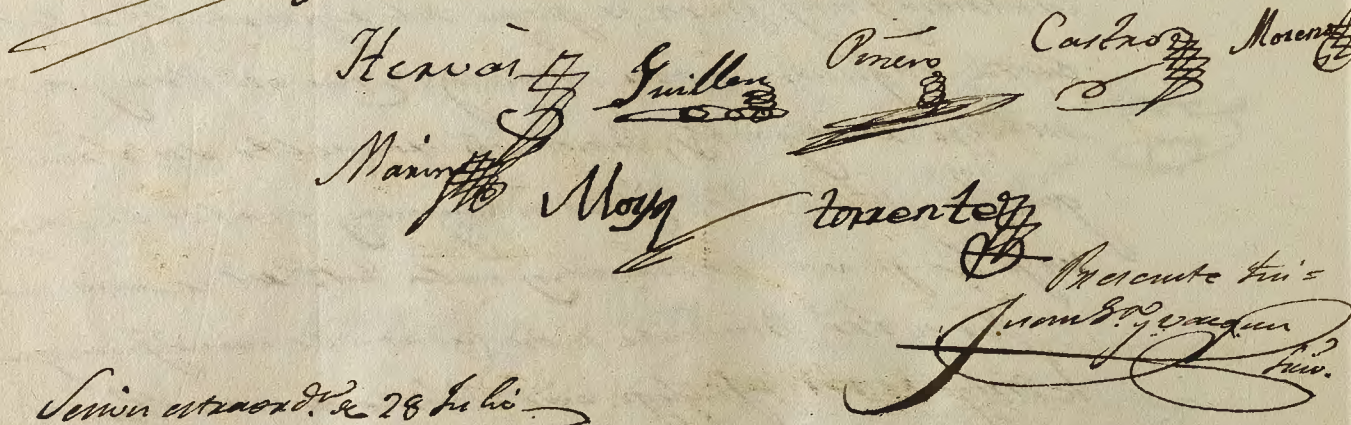 Hervás Guillen Piñero Castro Moreno
Marin Moya torrente
Presente fui =
Juan
Srio.
Sesion estraordª de 28 Julio